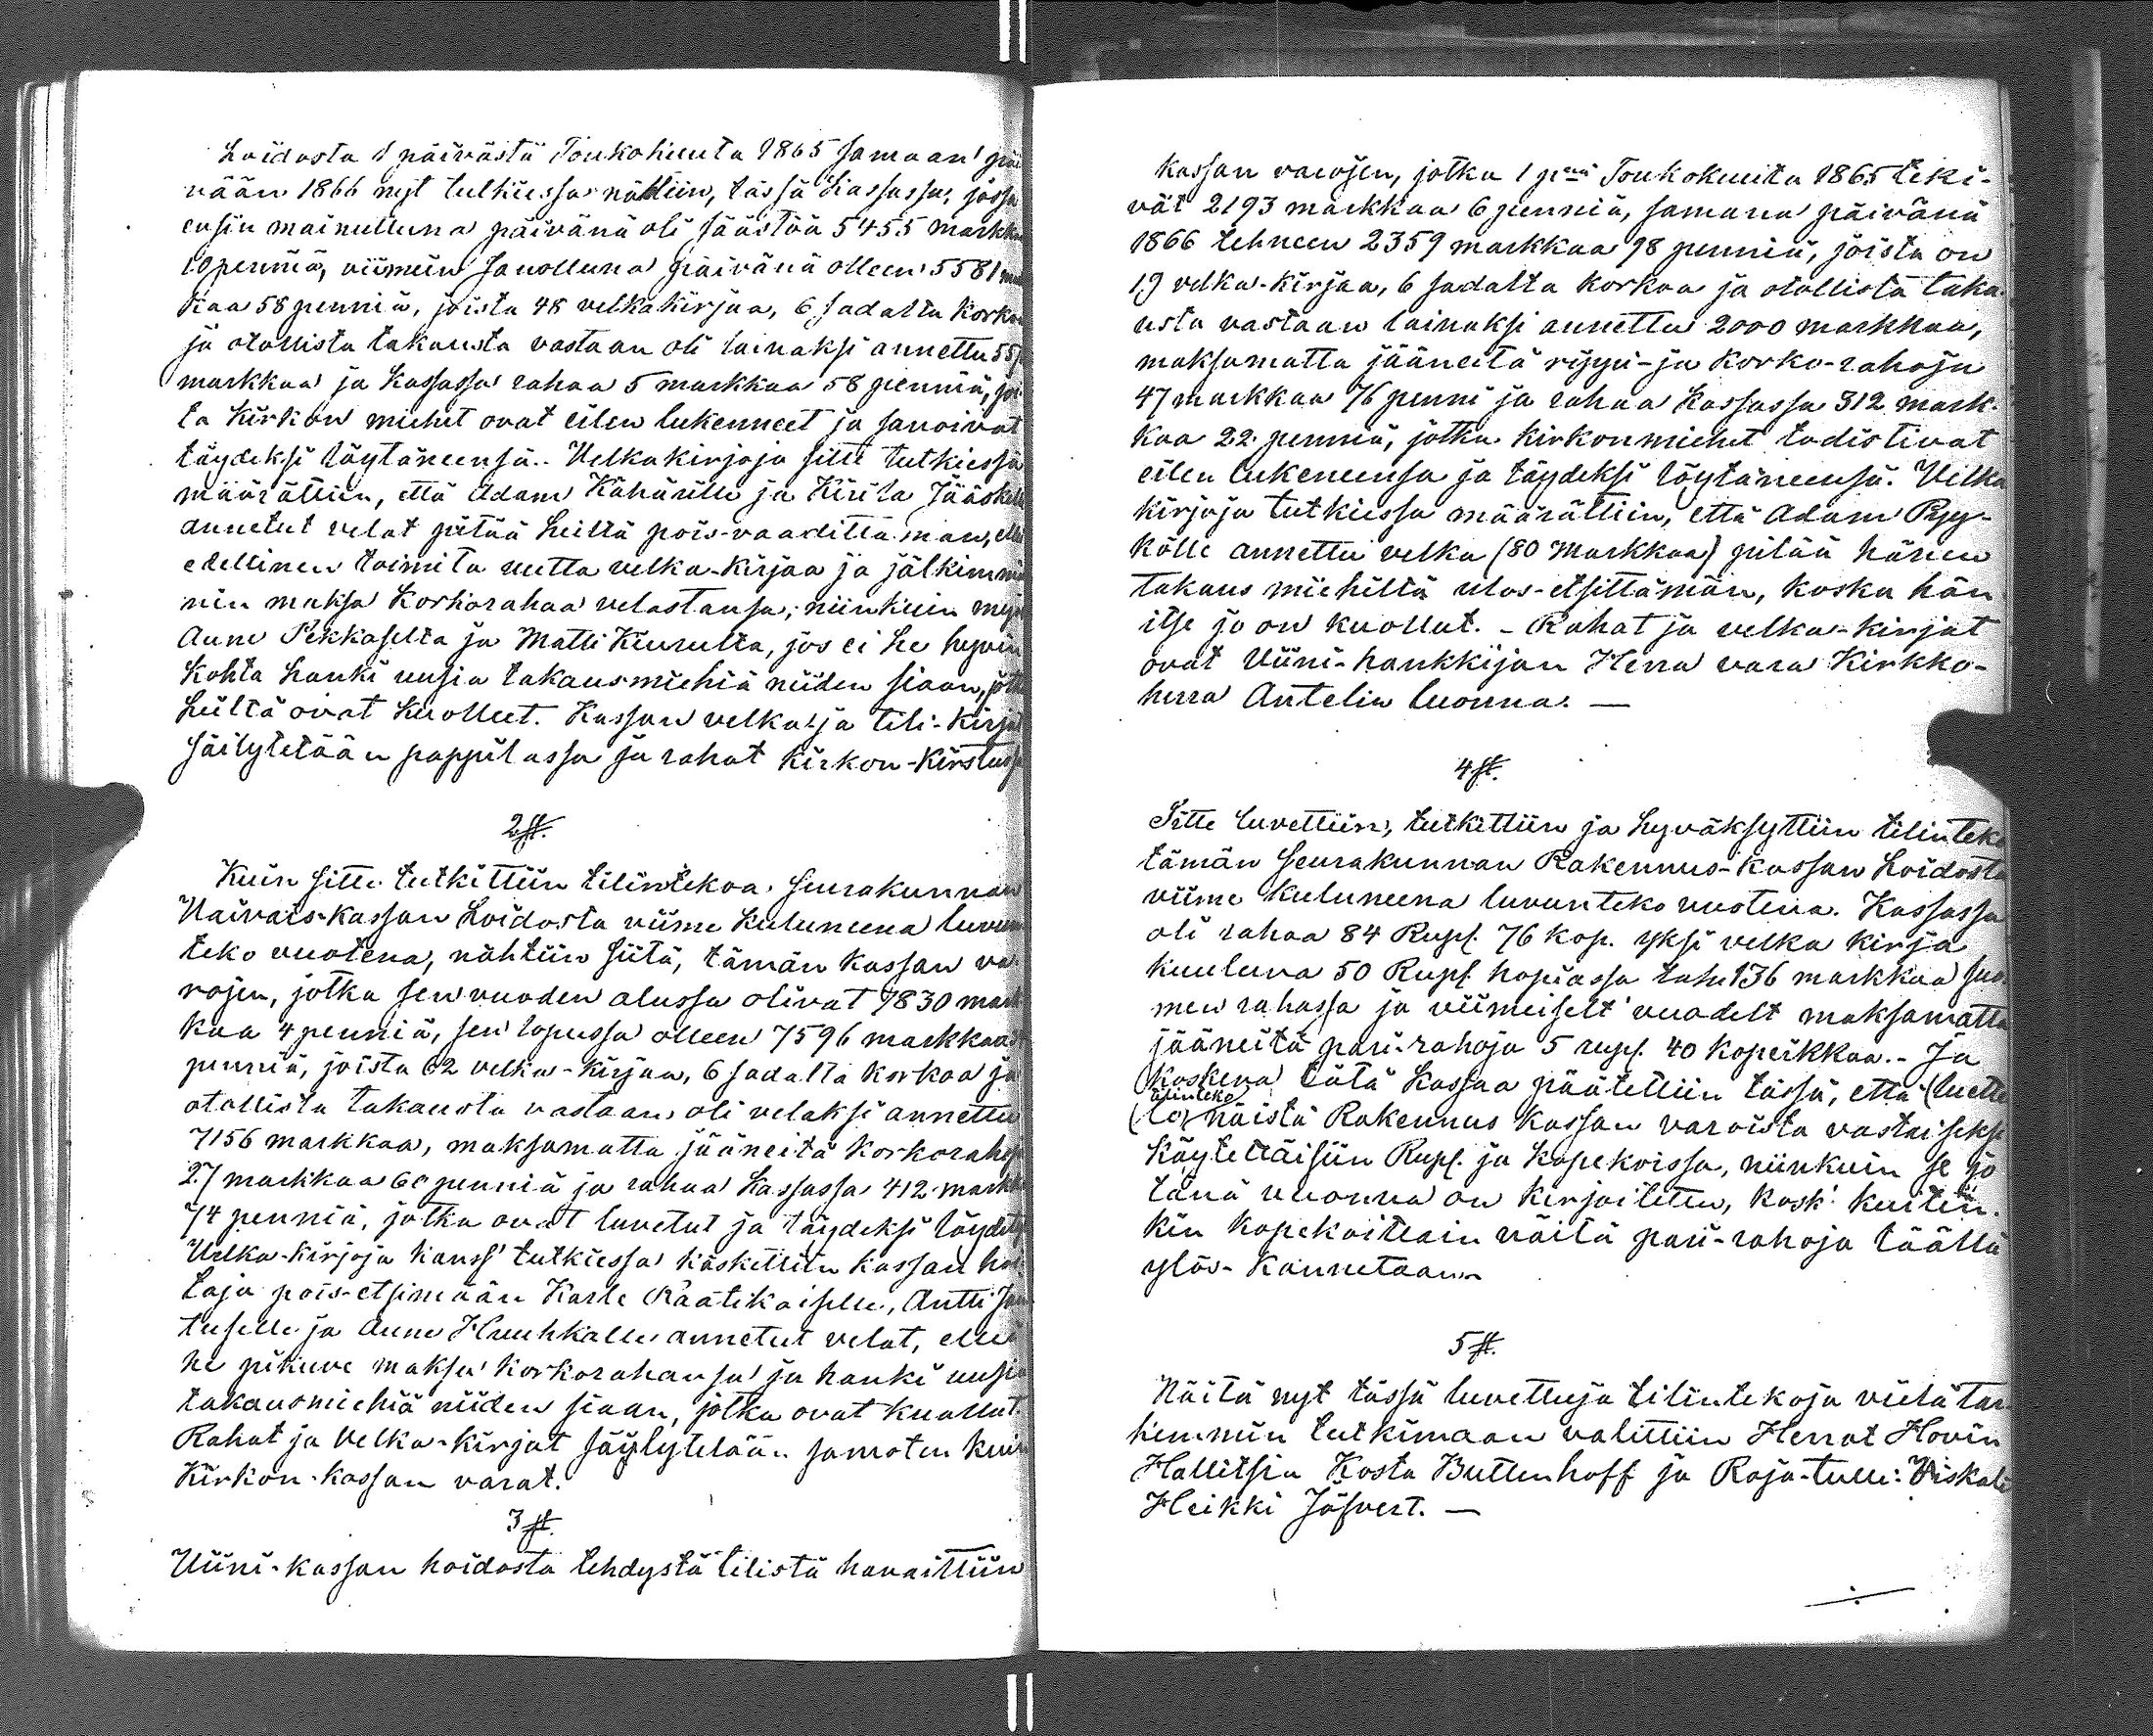 hoidosta 1 päivästä Toukokuuta 1865 samaan päi
vään 1866 nyt tutkiessa nähtiin, tässä Kassassa, jossa
ensin mainittuna päivänä oli säästöä 5455 markkaa
10 penniä, viimein sanottuna päivänä olleen 5581 mark
kaa 58 penniä, joista 48 velkakirjaa, 6 sadalta korkoa
ja otollista takausta vastaan oli lainaksi annettu
markkaa ja Kassassa rahaa 5 markkaa 58 penniä, joi
ta Kirkon miehet ovat eilen lukenneet ja sanoivat
täydeksi löytäneensä. Velkakirjoja sitte tutkiessa
määrättiin, että Adam Kähärille ja Kirila Jääskel
annetut velat pitää heiltä pois-vaadittaman, ellei
edellinen toimita uutta velka-kirjaa ja jälkimmä
nen maksa Korkorahaa velastansa; niinkuin myös
Anne Pekkaselta ja Matti Kiurulta, jos ei he hyvin
kohta hanki uusia takausmiehiä niiden siaan, jotka
heiltä ovat kuolleet. Kassan velka- ja tili-kirjat
säilytetään pappilassa ja rahat kirkon-kirstussa
2 §.
Kuin sitte tutkittiin tilintekoa Seurakunnan
Vaivais-kassan hoidosta viime kuluneena luvun
teko vuotena, nähtiin siitä, tämän kassan va
rojen, jotka sen vuoden alussa olivat 7830 mark
kaa 4 penniä, sen lopussa olleen 7596 markkaa
penniä, joista 62 velka-kirjaa, 6 sadalta korkoa ja
otollista takausta vastaan oli velaksi annettu
7156 markkaa, maksamatta jääneitä korkorahoja
27 markkaa 60 penniä ja rahaa Kassassa 412 markkaa
74 penniä, jotka ovat luvetut ja täydeksi löydetyt
Velka-kirjoja kanss' tutkiessa käskettiin kassan hoi
taja pois-etsimään Karle Räätikäiselle, Antti
tuselle ja Anne Huuhkalle annetut velat, ellei
he pikuve maksa korkorahansa ja hanki uusia
takausmiehiä niiden siaan, jotka ovat kuollut.
Rahat ja Velka-kirjat säilytetään samoten kuin
Kirkon-kassan varat.
3 §.
Viini-kassan hoidosta tehdystä tilistä havaittiin
kassan varojen, jotka 1 pnä Toukokuuta 1865 teki-
vät 2193 markkaa 6 penniä, samana päivänä
1866 tehneen 2359 markkaa 98 penniä, joista on
19 velka-kirjaa, 6 sadalta korkoa ja otollista taka
usta vastaan lainaksi annettu 2000 markkaa,
maksamatta jääneitä ryyni- ja korko-rahoja
47 markkaa 76 penni ja rahaa Kassassa 312 mark-
kaa 22 penniä, jotka kirkonmiehet todistivat
eilen lukeneensa ja täydeksi löytäneensä. Velka
kirjoja tutkiessa määrättiin, että Adam Pyy-
kölle annettu velka (80 Markkaa) pitää hänen
takaus miehiltä ulos-etsittämän, koska hän
itse jo on kuollut. - Rahat ja velka-kirjat
ovat Viini-hankkijan Herra vara Kirkko-
herra Antelin luonna. —
4 §.
Sitte luvettiin, tutkittiin ja hyväksyttiin tilinteko
tämän Seurakunnan Rakennus-kassan hoidosta
viime kuluneena luvunteko vuotena. Kassassa
oli rahaa 84 Rupl. 76 kop. yksi velka kirja
kuuluva 50 Rupl. hopiassa 136 markkaa Suo
men rahassa ja viimeiselt' vuodelt maksamatta
jääneitä pari-rahoja 5 rupl. 40 kopeikkaa. - Ja
koskeva tätä Kassaa päätettiin tässä, että (luette
tilinteko
(lo) näistä Rakennus Kassan varoista vastaiseksi
käytettäisiin Rupl. ja kopekoissa, niinkuin se jo
tänä vuonna on kirjoitettu, kosk' kuiten-
kin kopekoittain näitä pari-rahoja täällä
ylös-kannetaan.
5 §.
Näitä nyt tässä luvettuja tilintekoja vielä tar
kemmin tutkimaan valittiin Herrat Hovin
Hallitsia Kosta Buttenhoff ja Raja-tulli-Viskali
Heikki Jöfvert. —